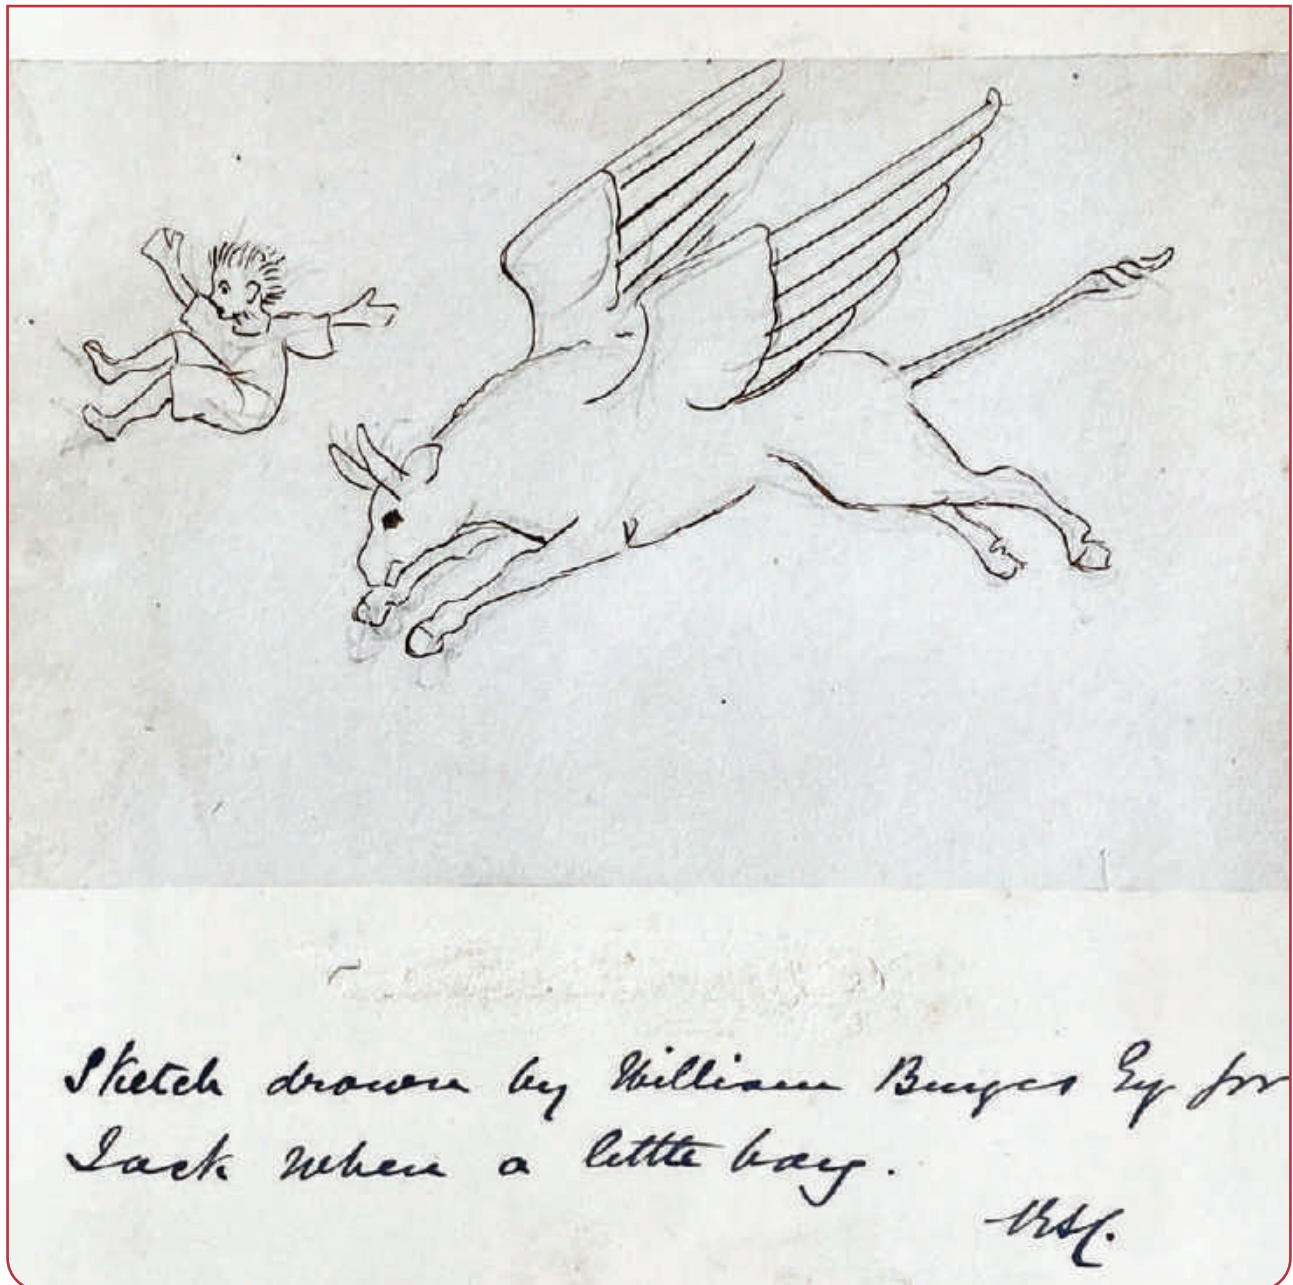 Sketch drawn by William Burges Esq for
Jack when a little boy.